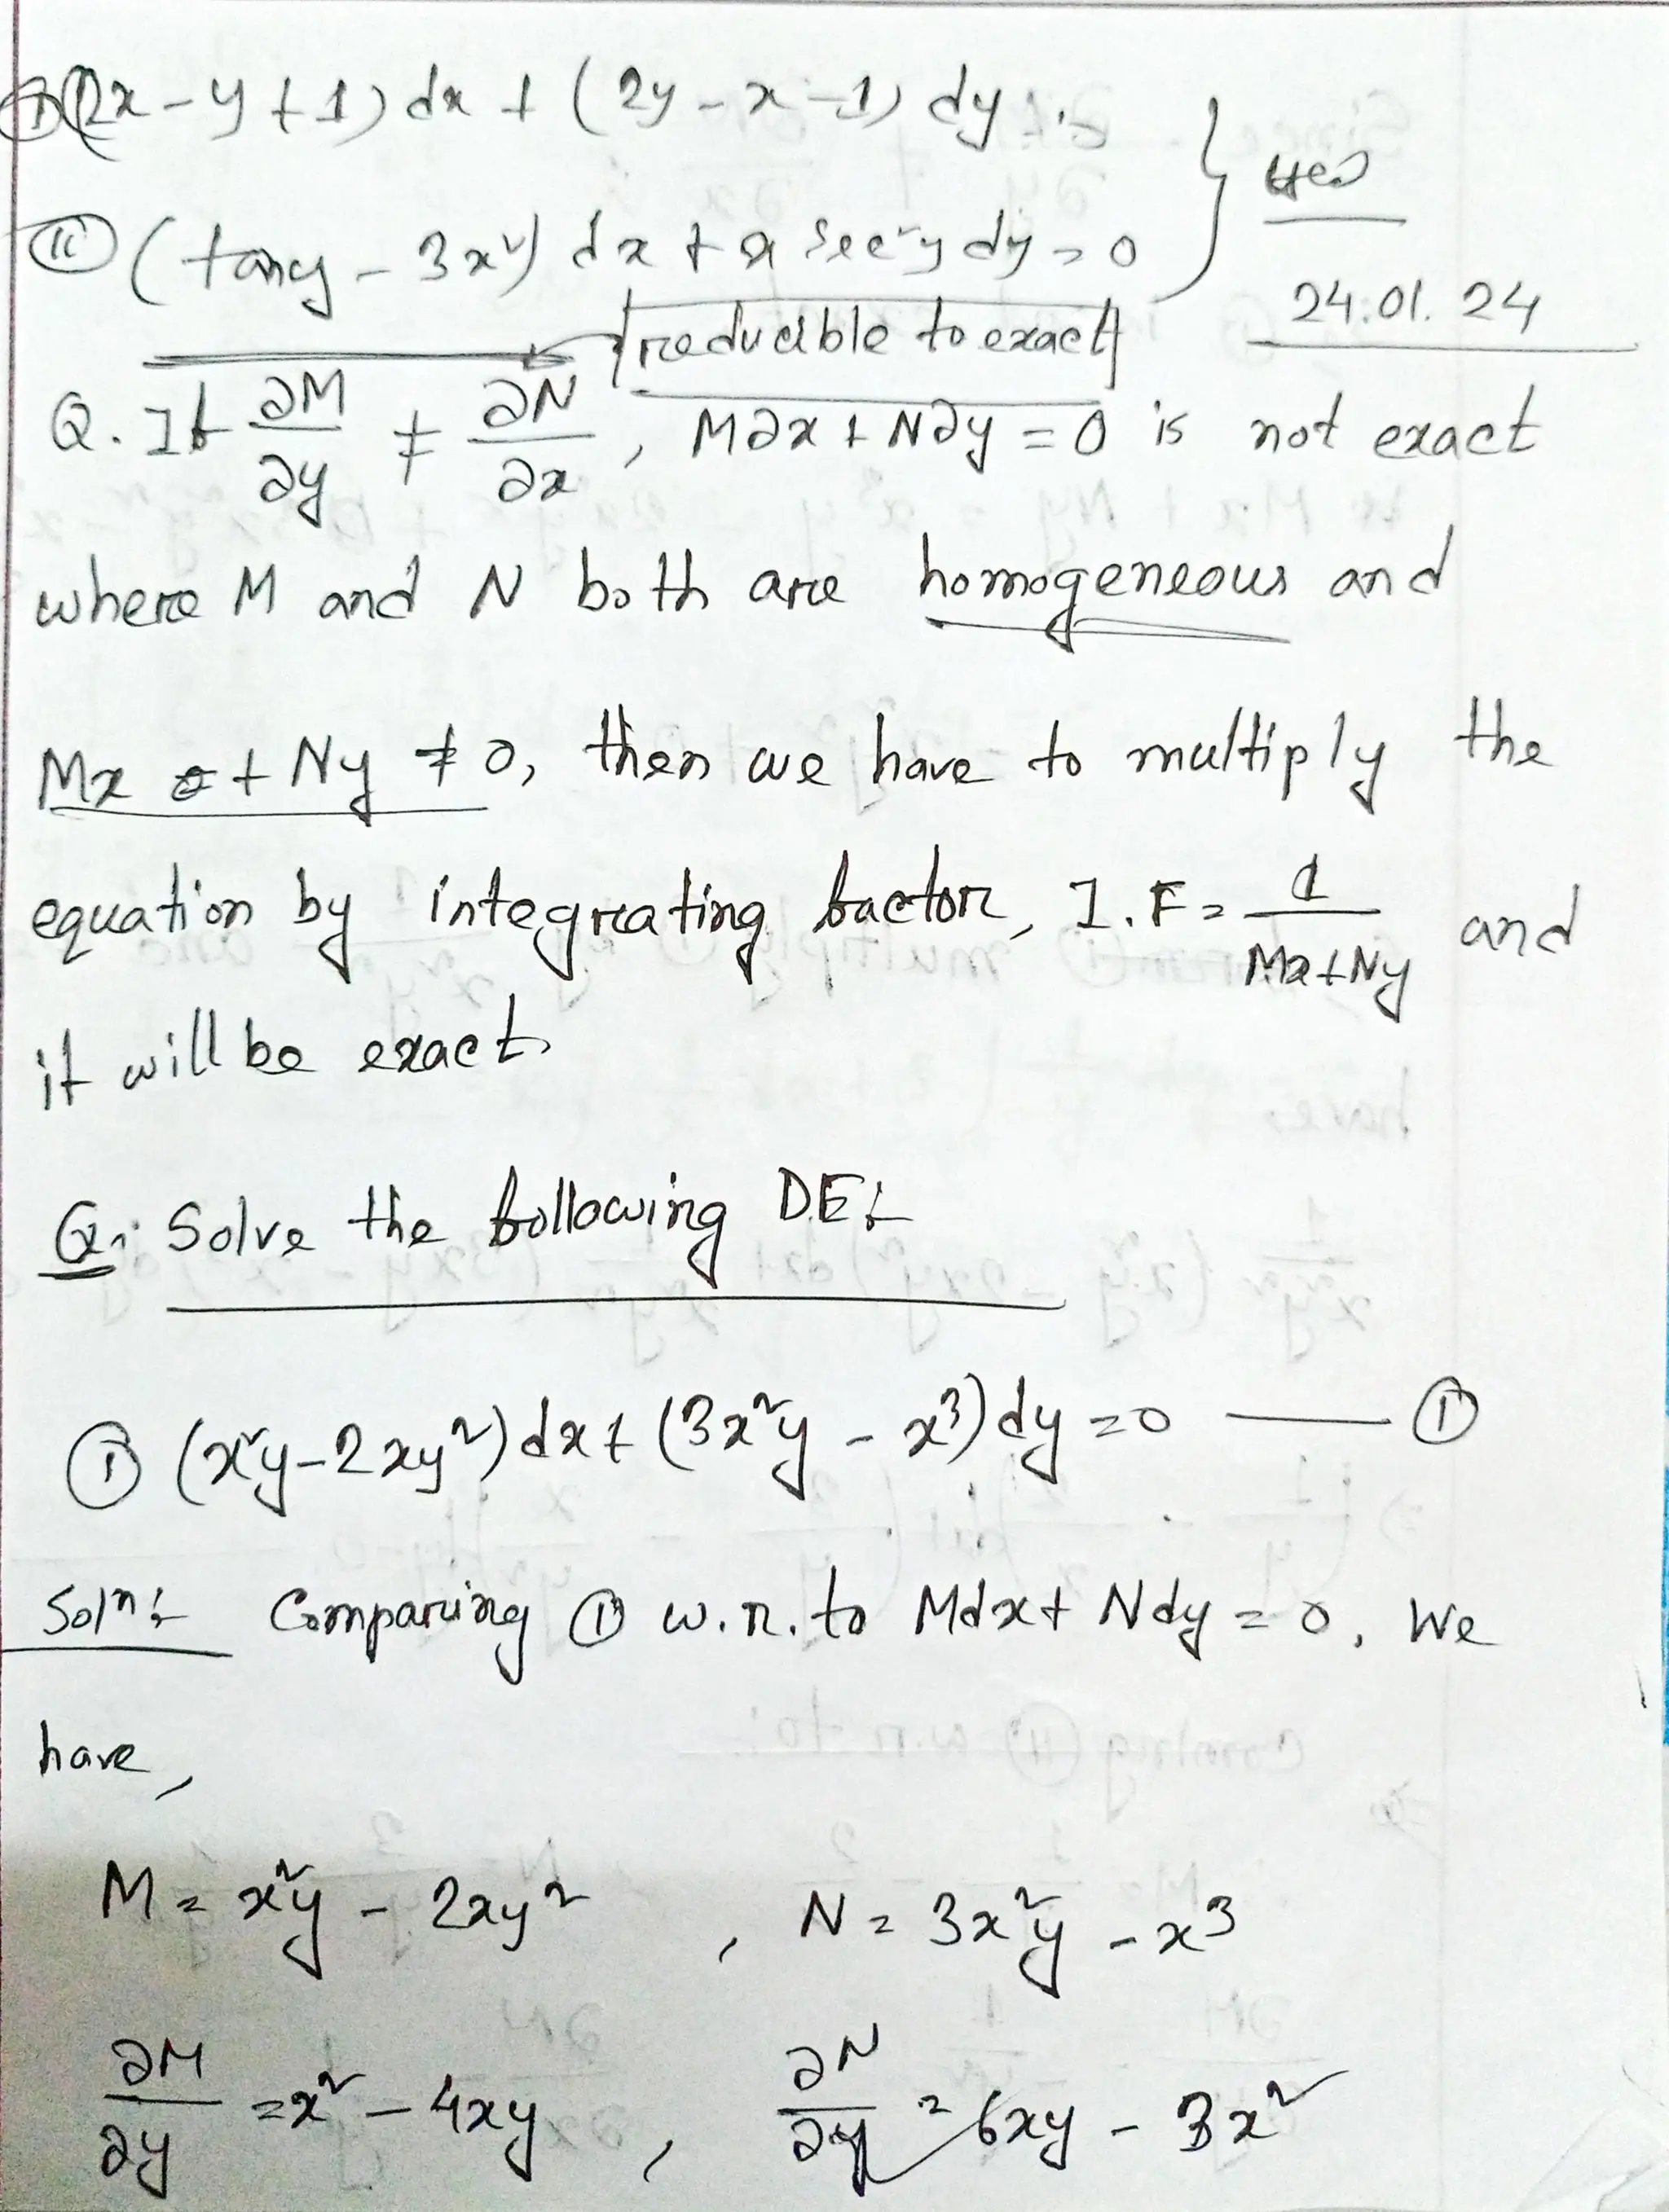 ① (2x - y + 1) dx + (2y - x - 1) dy .
ⓘⓘ (tany - 3x²) dx + x sec²y dy = 0
24.01.24
reducible to exact
Q. If ∂M/∂y ≠ ∂N/∂x, M∂x + N∂y = 0 is not exact
where M and N both are homogeneous and
Mx + Ny ≠ 0, then we have to multiply the
equation by integrating factor, I.F = 1/(Mx+Ny) and
it will be exact.
Q: Solve the following DE:-
① (x²y - 2xy²) dx + (3x²y - x³) dy = 0 —— ①
Solⁿ:- Comparing ① w.r.to Mdx + Ndy = 0, We
have,
M = x²y - 2xy² , N = 3x²y - x³
∂M/∂y = x² - 4xy , ∂N/∂y = 6xy - 3x²